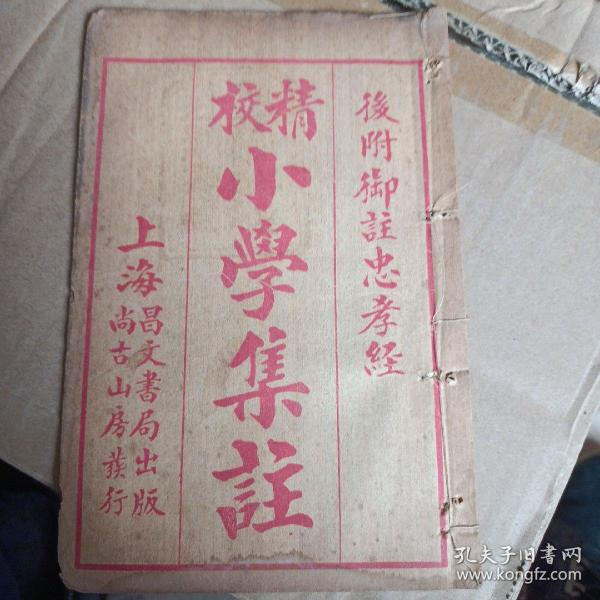 後附御註忠孝経
精校
小學集註
上海
昌文書局出版
尚古山房發行
孔夫子旧书网
www.kongfz.com